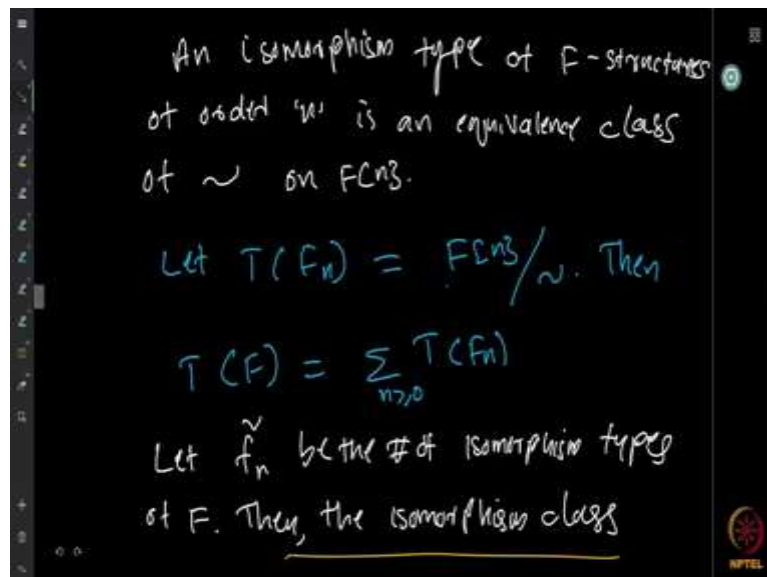 An isomorphism type of F-structures
of order 'n' is an equivalence class
of ~ on F[n].
Let T(Fn) = F[n]/~. Then
T(F) = Σ T(Fn)
n≥0
Let f̃n be the # of isomorphism types
of F. Then, the isomorphism class
NPTEL